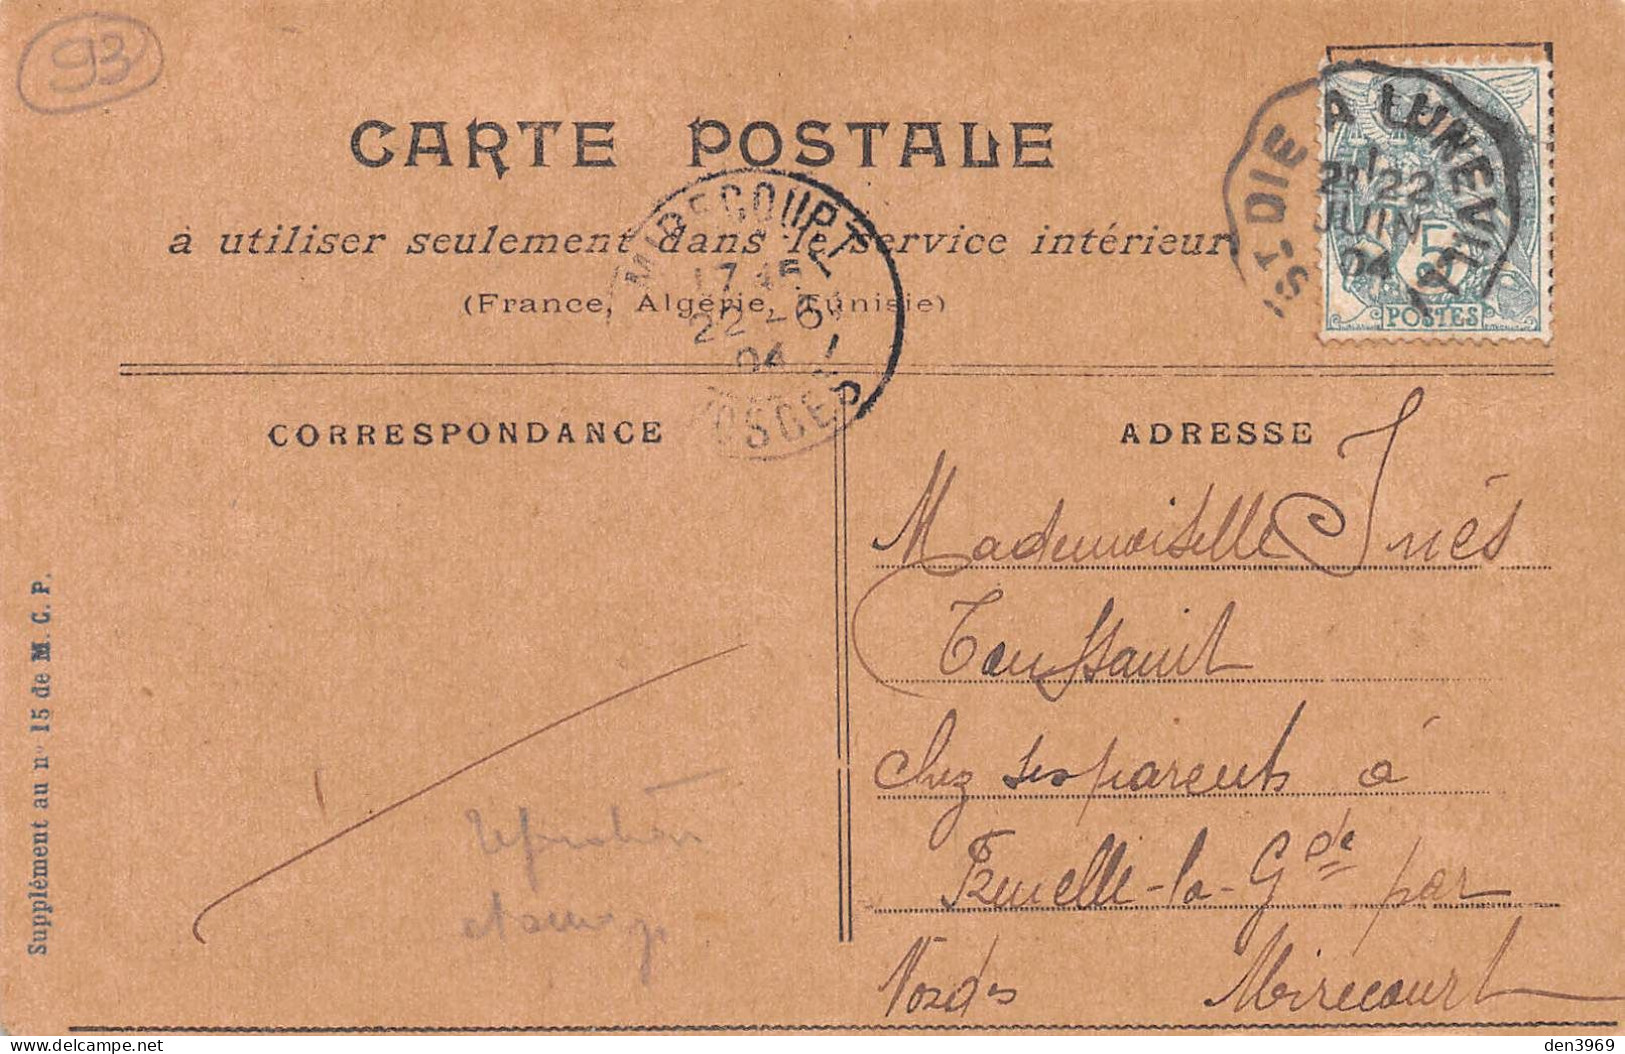 93
CARTE POSTALE
à utiliser seulement dans le service intérieur
(France, Algérie, Tunisie)
ST-DIE A LUNEVILLE
22
JUIN
04
5
POSTES
MIRECOURT
17 15
22 - 6
04
VOSGES
CORRESPONDANCE
ADRESSE
Mademoiselle Inès
Toussaint
chez ses parents à
la-Gde par
Mirecourt
Vosges
Supplément au n° 15 de M. C. P.
den3969